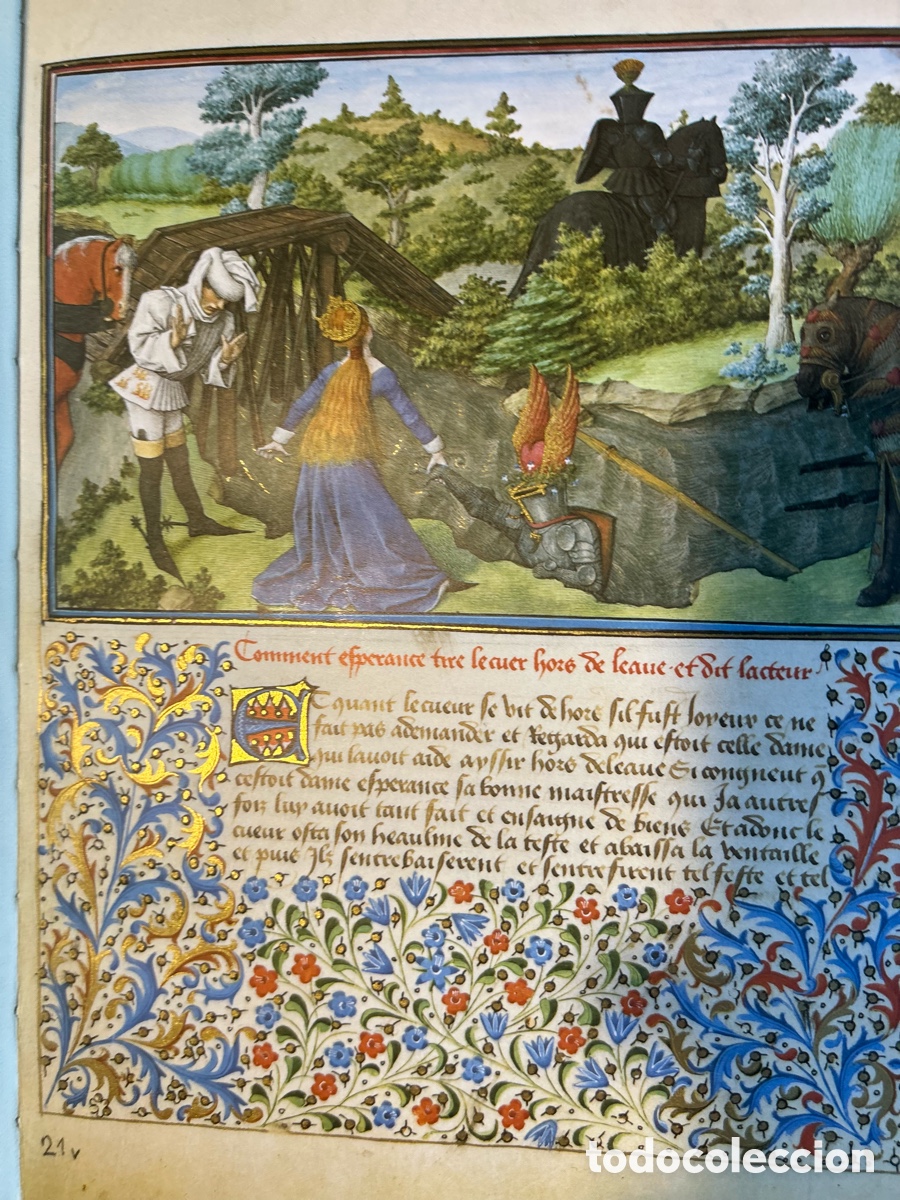 Comment esperance tire le cuer hors de leaue · et dit lacteur ·
Et quant le cueur se vit dehors sil fust Joyeux ce ne
fait pas ademander et Regarda qui estoit celle dame
qui lauoit aide ayssir hors deleaue Si congneut q̄
cestoit dame esperance sa bonne maistresse qui Ja autres
foiz luy auoit tant fait et ensaigne de biens Et adonc le
cueur osta son heaulme de la teste et abaissa la ventaille
et puis Ilz sentrebaiserent et sentrefirent tel feste et tel
21v
todocoleccion